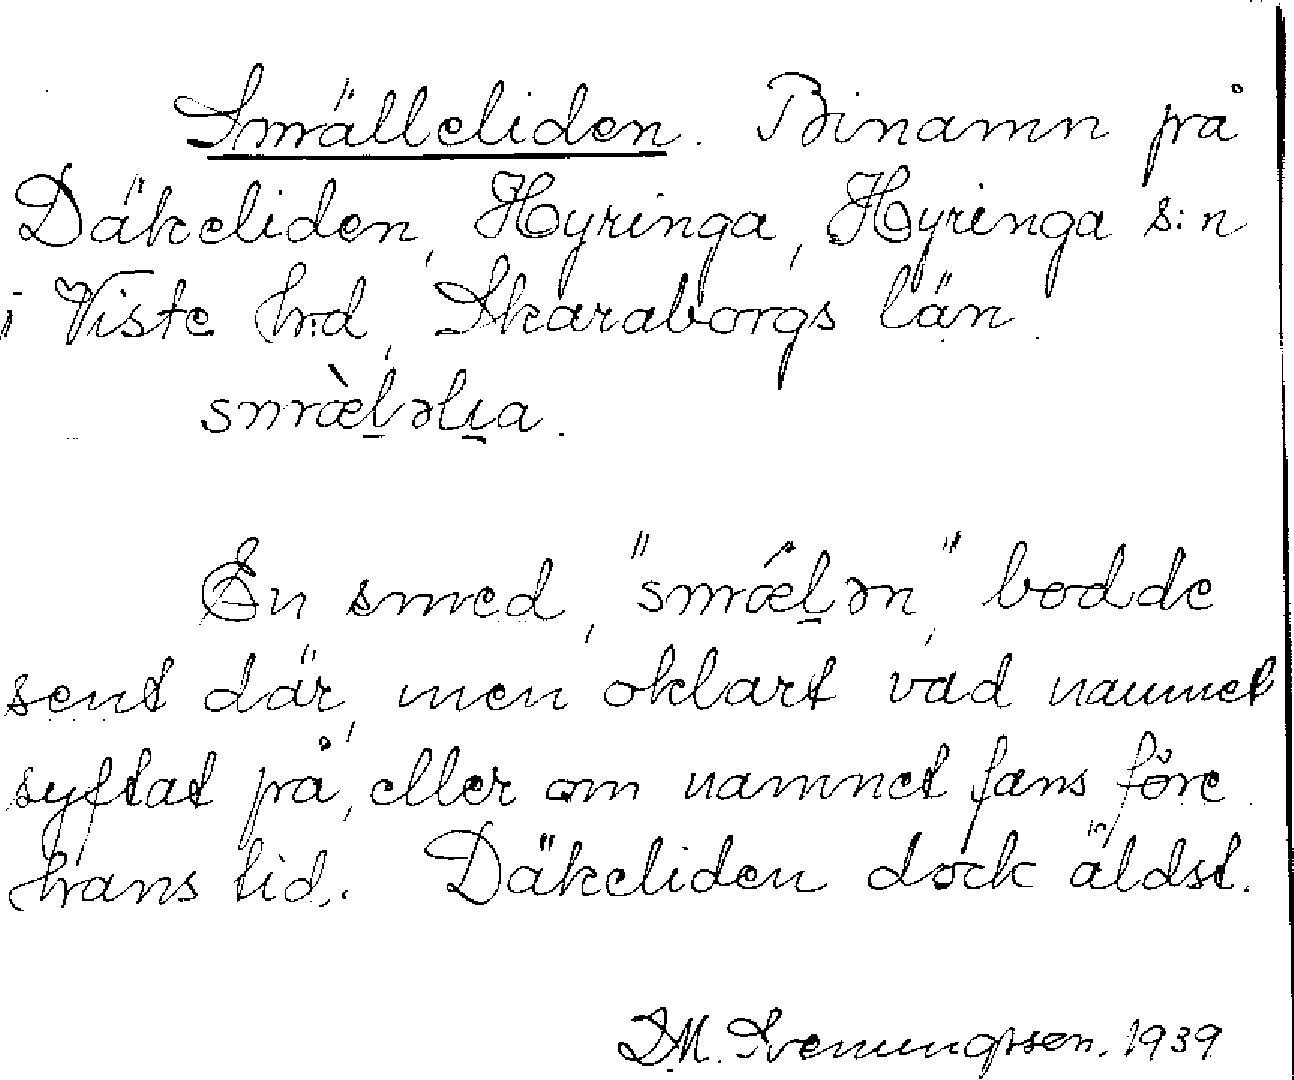 Smälleliden. Binamn på
Däkeliden, Hyringa, Hyringa s:n
i Viste h:d, Skaraborgs län.
smæ̀l̠əlɩ̠a.
En smed, "smǽl̠ən", bodde
sent där, men oklart vad namnet
syftat på, eller om namnet fans före
hans tid. Däkeliden dock äldst.
D.M. Svenungsson. 1939